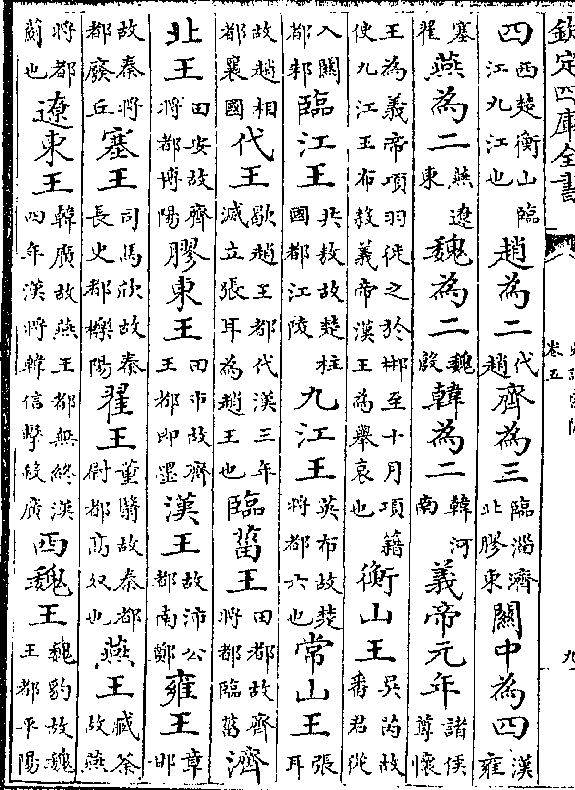 欽定四庫全書 卷五 九
四西楚衡山臨江九江也趙為二代趙齊為三臨淄濟北膠東關中為四漢雍
塞翟燕為二燕遼東魏為二魏殷韓為二韓河南義帝元年諸侯尊懷
王為義帝項羽徙之於郴至十月項籍使九江王布殺義帝漢王為舉哀也衡山王吳芮故番君從
入關都邾臨江王共敖故楚柱國都江陵九江王英布故楚將都六也常山王張耳
故趙相都襄國代王歇趙王都代漢三年滅立張耳為趙王也臨菑王田都故齊將都臨菑濟
北王田安故齊將都博陽膠東王田市故齊王都即墨漢王故沛公都南鄭雍王章邯
故秦將都廢丘塞王司馬欣故秦長史都櫟陽翟王董醫故秦都尉都高奴也燕王臧荼故燕
將都薊也遼東王韓廣故燕王都無終漢四年漢將韓信擊殺廣西魏王魏豹故魏王都平陽